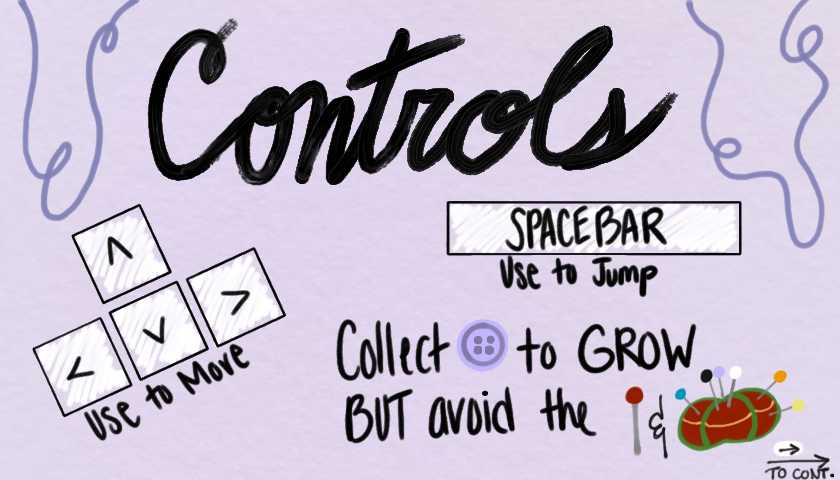 Controls
^
< v >
Use to Move
SPACEBAR
Use to Jump
Collect to GROW
BUT avoid the &
→
TO CONT.